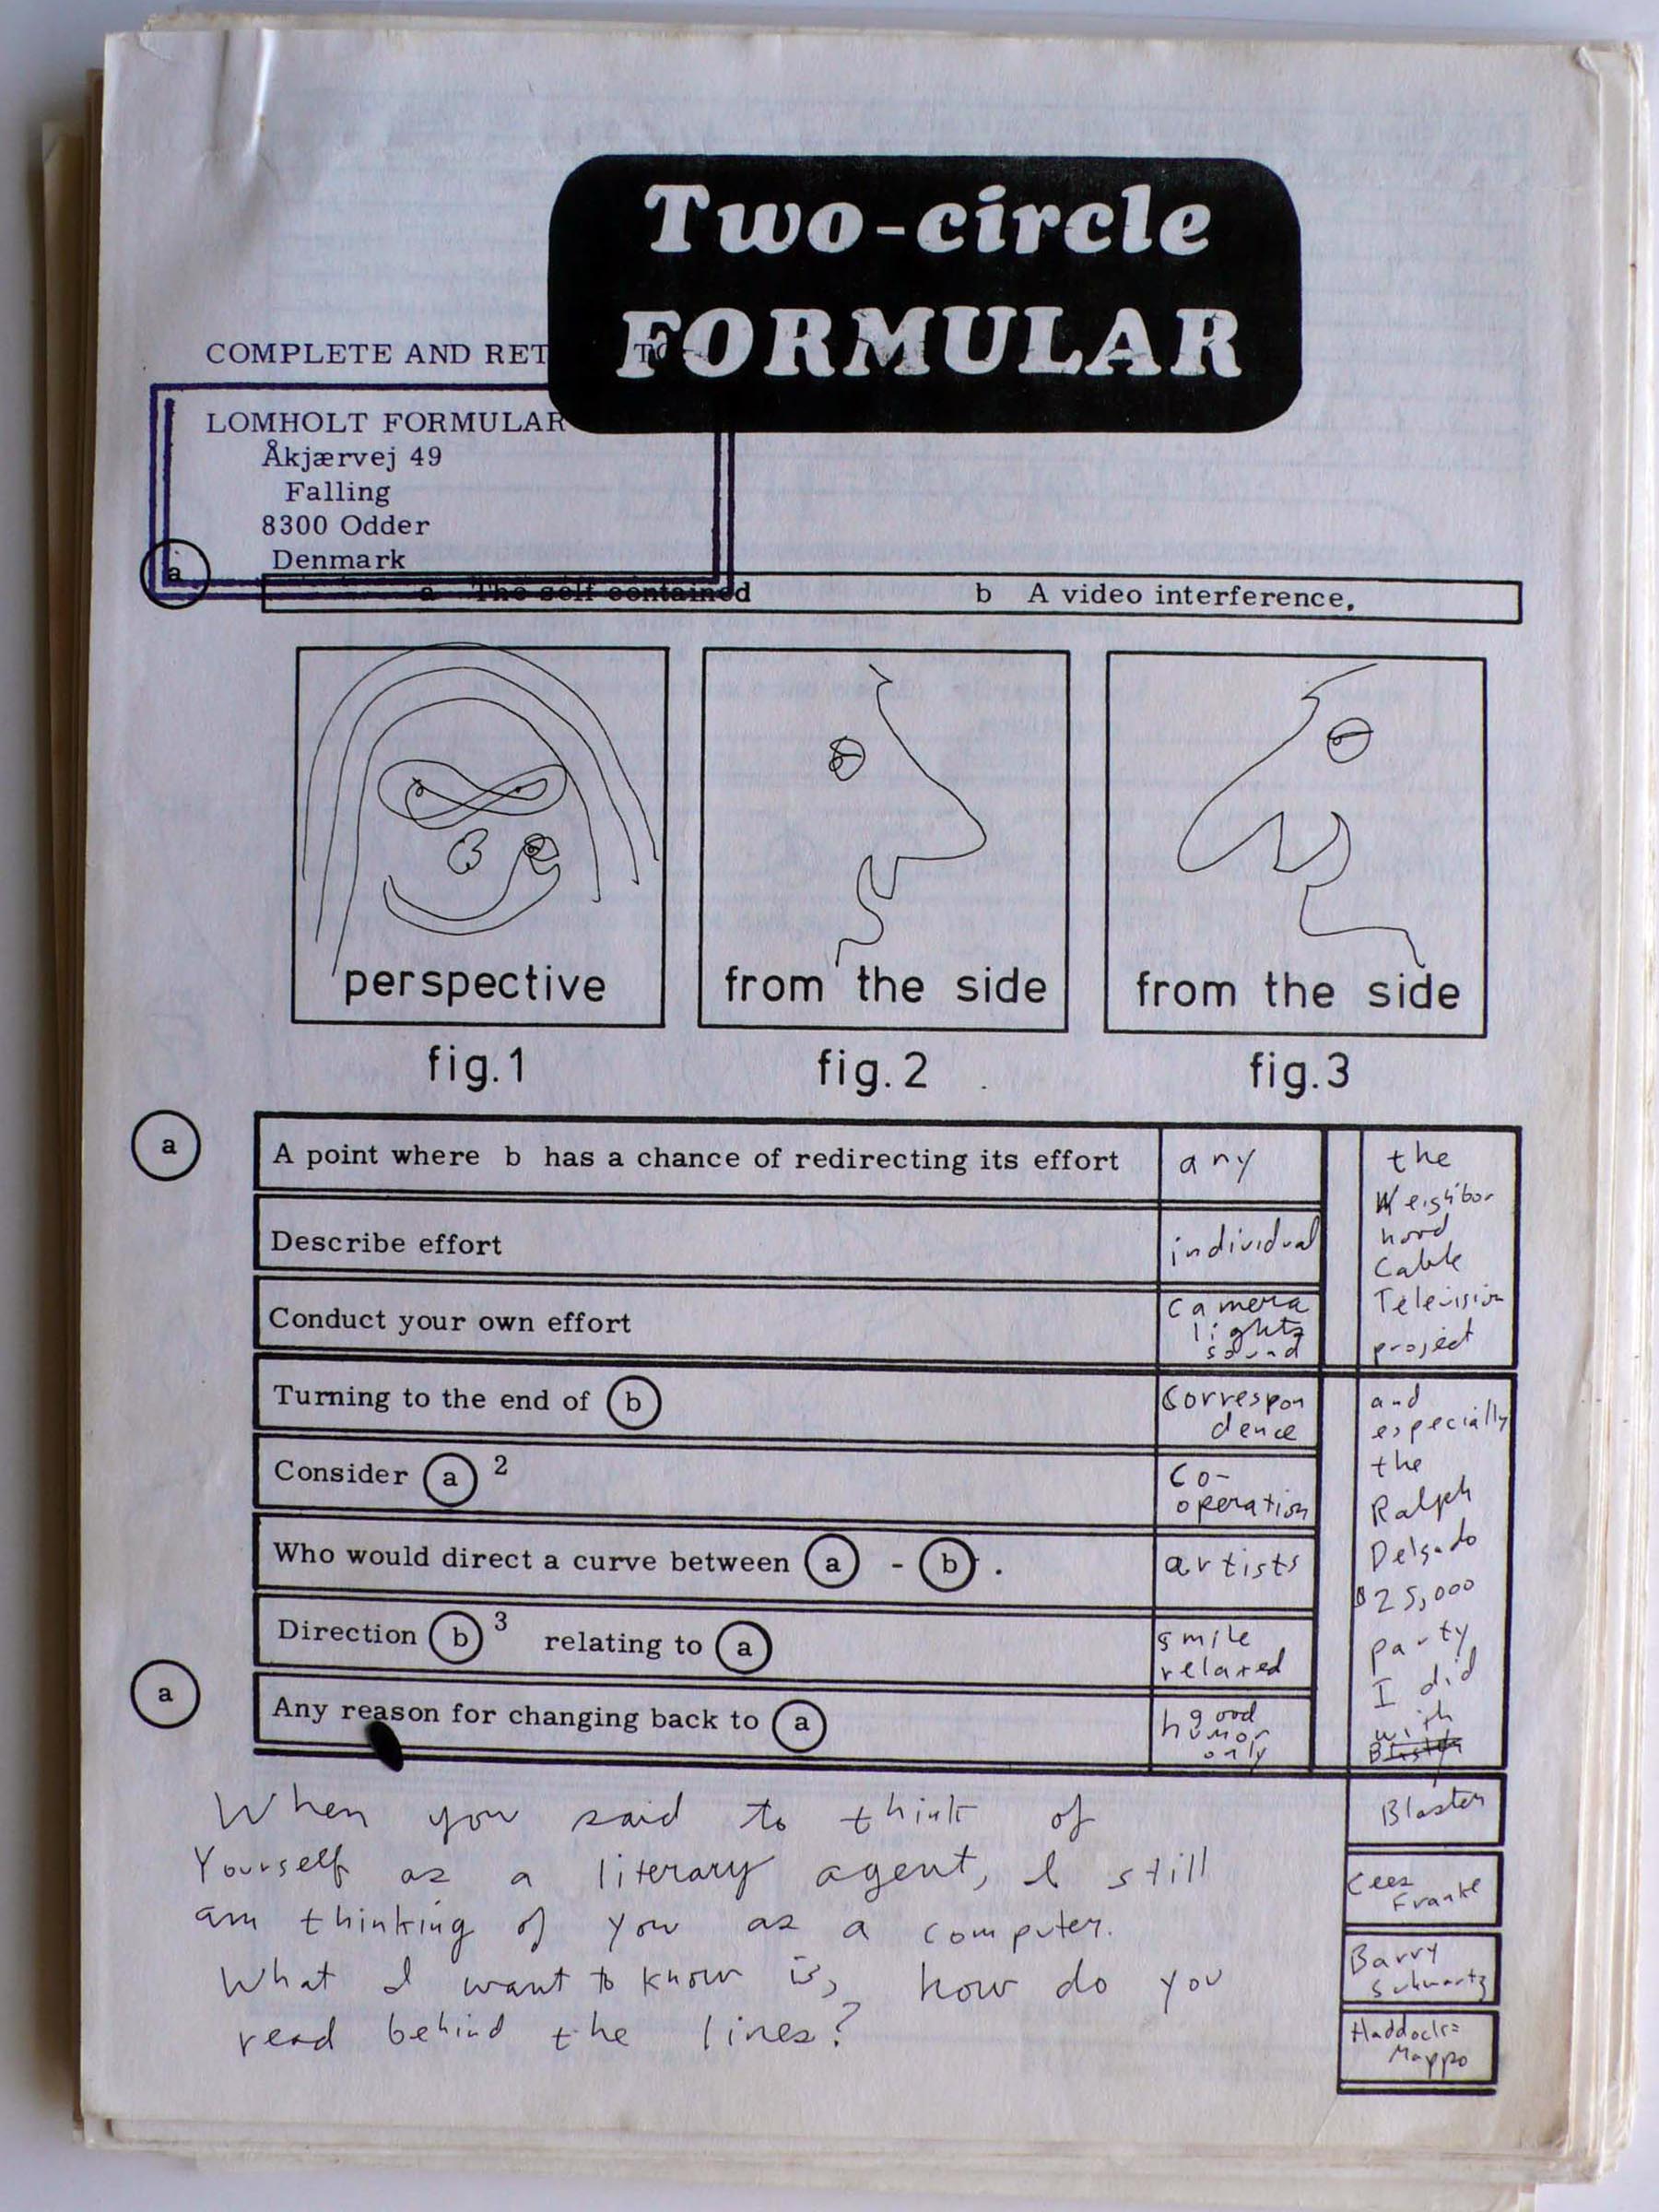 Two-circle
FORMULAR
COMPLETE AND RET TO
LOMHOLT FORMULAR
Åkjærvej 49
Falling
8300 Odder
Denmark
a
a The self contained b A video interference.
perspective
from the side
from the side
fig.1
fig.2
fig.3
a
A point where b has a chance of redirecting its effort
any
Describe effort
individual
Conduct your own effort
camera
lights
sound
Turning to the end of b
Correspon
dence
Consider a 2
co-
operation
Who would direct a curve between a - b .
artists
Direction b 3 relating to a
smile
relaxed
a
Any reason for changing back to a
good
humor
only
the
Neighbor
hood
Cable
Television
project
and
especially
the
Ralph
Delgado
$25,000
party
I did
with
Blaster
Cees
Franke
Barry
Schwartz
Haddock=
Mappo
When you said to think of
Yourself as a literary agent, I still
am thinking of you as a computer.
What I want to know is, how do you
read behind the lines?